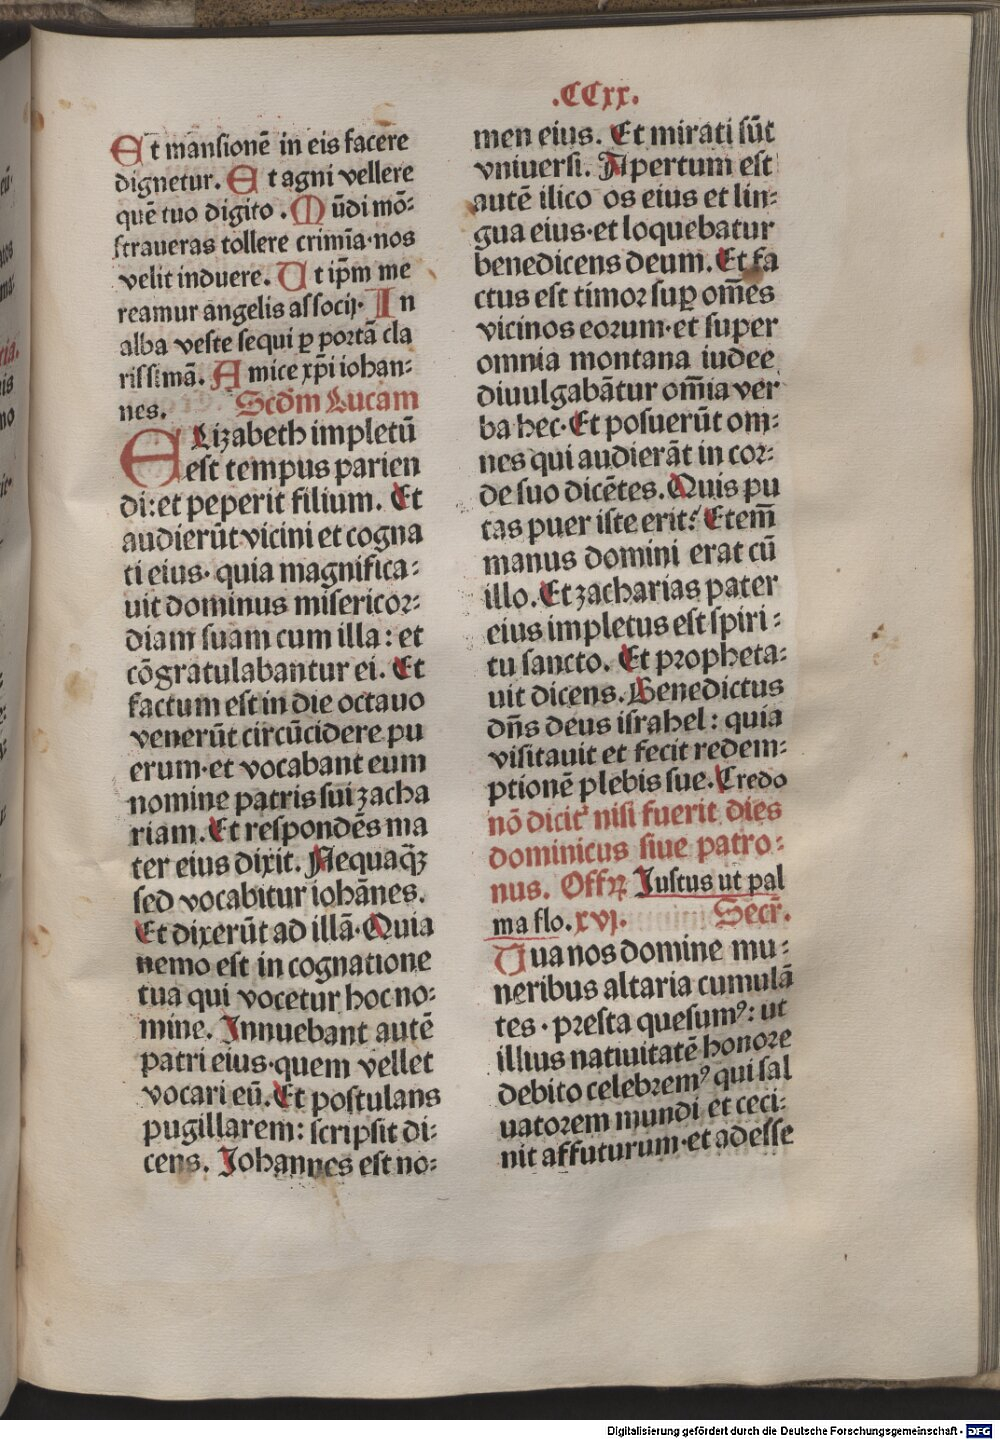 .CCxx.
Et mansionē in eis facere
dignetur. Et agni vellere
quē tuo digito. Mūdi mō-
straueras tollere crimīa·nos
velit induere. Ut ip̄m me
reamur angelis associj· In
alba veste sequi ꝑ portā cla
rissimā. Amice xp̄i iohan-
nes. Scd̄m Lucam
ELizabeth impletū
est tempus parien
di: et peperit filium. Et
audierūt vicini et cogna
ti eius· quia magnifica-
uit dominus misericor-
diam suam cum illa: et
cōgratulabantur ei. Et
factum est in die octauo
venerūt circūcidere pu
erum·et vocabant eum
nomine patris sui zacha
riam. Et respondēs ma
ter eius dixit. Nequaq̄ꝫ
sed vocabitur iohānes.
Et dixerūt ad illā· Quia
nemo est in cognatione
tua qui vocetur hoc no-
mine. Innuebant autē
patri eius·quem vellet
vocari eū. Et postulans
pugillarem: scripsit di-
cens. Johannes est no-
men eius. Et mirati sūt
vniuersi. Apertum est
autē ilico os eius et lin-
gua eius·et loquebatur
benedicens deum. Et fa
ctus est timor suꝑ om̄es
vicinos eorum·et super
omnia montana iudee
diuulgabātur om̄ia ver
ba hec· Et posuerūt om-
nes qui audierāt in cor-
de suo dicētes. Quis pu
tas puer iste erit? Etem̄
manus domini erat cū
illo. Et zacharias pater
eius impletus est spiri-
tu sancto. Et propheta-
uit dicens. Benedictus
dn̄s deus israhel: quia
visitauit et fecit redem-
ptionē plebis sue. Credo
nō dicit᷑ nisi fuerit dies
dominicus siue patro-
nus. Offꝝ Justus ut pal
ma flo. xvj. Secr̄.
Tua nos domine mu-
neribus altaria cumulā
tes · presta quesumꝰ: ut
illius natiuitatē honore
debito celebremꝰ qui sal
uatorem mundi et ceci-
nit affuturum·et adesse
Digitalisierung gefördert durch die Deutsche Forschungsgemeinschaft - DFG